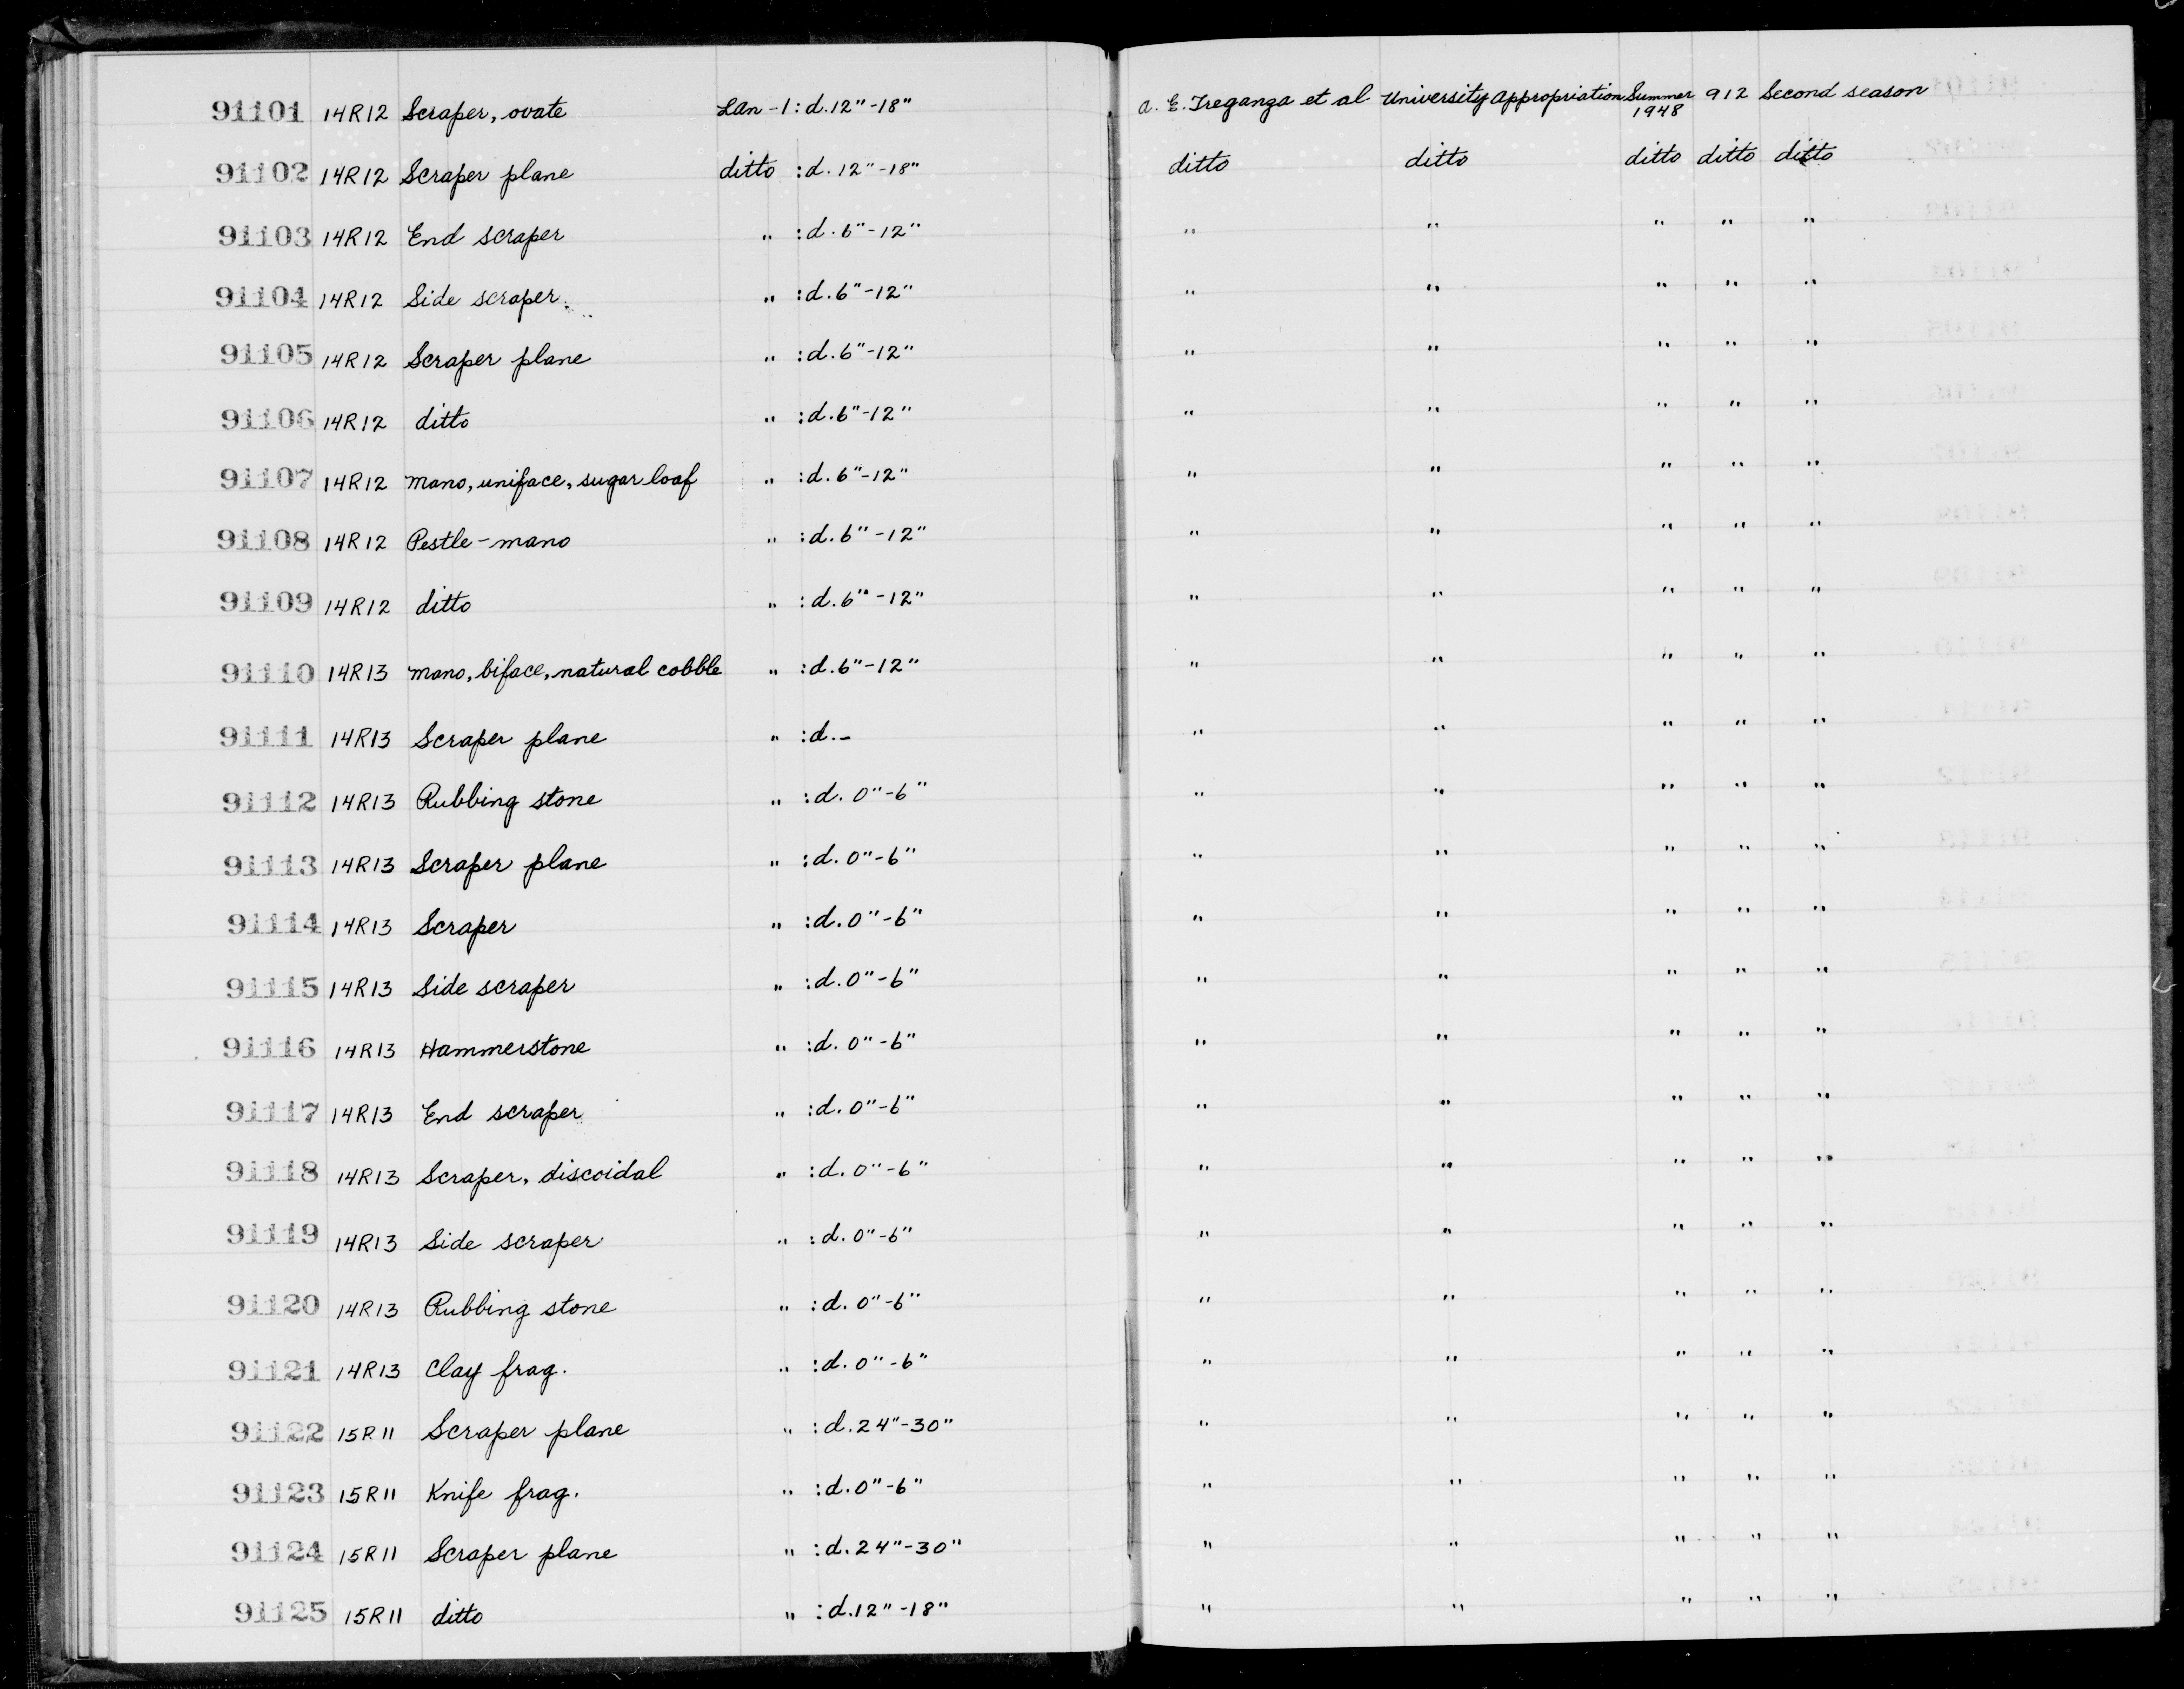 91101 14R12 Scraper, ovate Lan-1 : d. 12"-18" A. E. Treganza et al University Appropriation Summer 1948 912 Second season
91102 14R12 Scraper plane ditto : d. 12"-18" ditto ditto ditto ditto ditto
91103 14R12 End scraper " : d. 6"-12" " " " " "
91104 14R12 Side scraper. " : d. 6"-12" " " " " "
91105 14R12 Scraper plane " : d. 6"-12" " " " " "
91106 14R12 ditto " : d. 6"-12" " " " " "
91107 14R12 Mano, uniface, sugar loaf " : d. 6"-12" " " " " "
91108 14R12 Pestle-mano " : d. 6"-12" " " " " "
91109 14R12 ditto " : d. 6"-12" " " " " "
91110 14R13 Mano, biface, natural cobble " : d. 6"-12" " " " " "
91111 14R13 Scraper plane " : d. - " " " " "
91112 14R13 Rubbing stone " : d. 0"-6" " " " " "
91113 14R13 Scraper plane " : d. 0"-6" " " " " "
91114 14R13 Scraper " : d. 0"-6" " " " " "
91115 14R13 Side scraper " : d. 0"-6" " " " " "
91116 14R13 Hammerstone " : d. 0"-6" " " " " "
91117 14R13 End scraper " : d. 0"-6" " " " " "
91118 14R13 Scraper, discoidal " : d. 0"-6" " " " " "
91119 14R13 Side scraper " : d. 0"-6" " " " " "
91120 14R13 Rubbing stone " : d. 0"-6" " " " " "
91121 14R13 Clay frag. " : d. 0"-6" " " " " "
91122 15R11 Scraper plane " : d. 24"-30" " " " " "
91123 15R11 Knife frag. " : d. 0"-6" " " " " "
91124 15R11 Scraper plane " : d. 24"-30" " " " " "
91125 15R11 ditto " : d. 12"-18" " " " " "